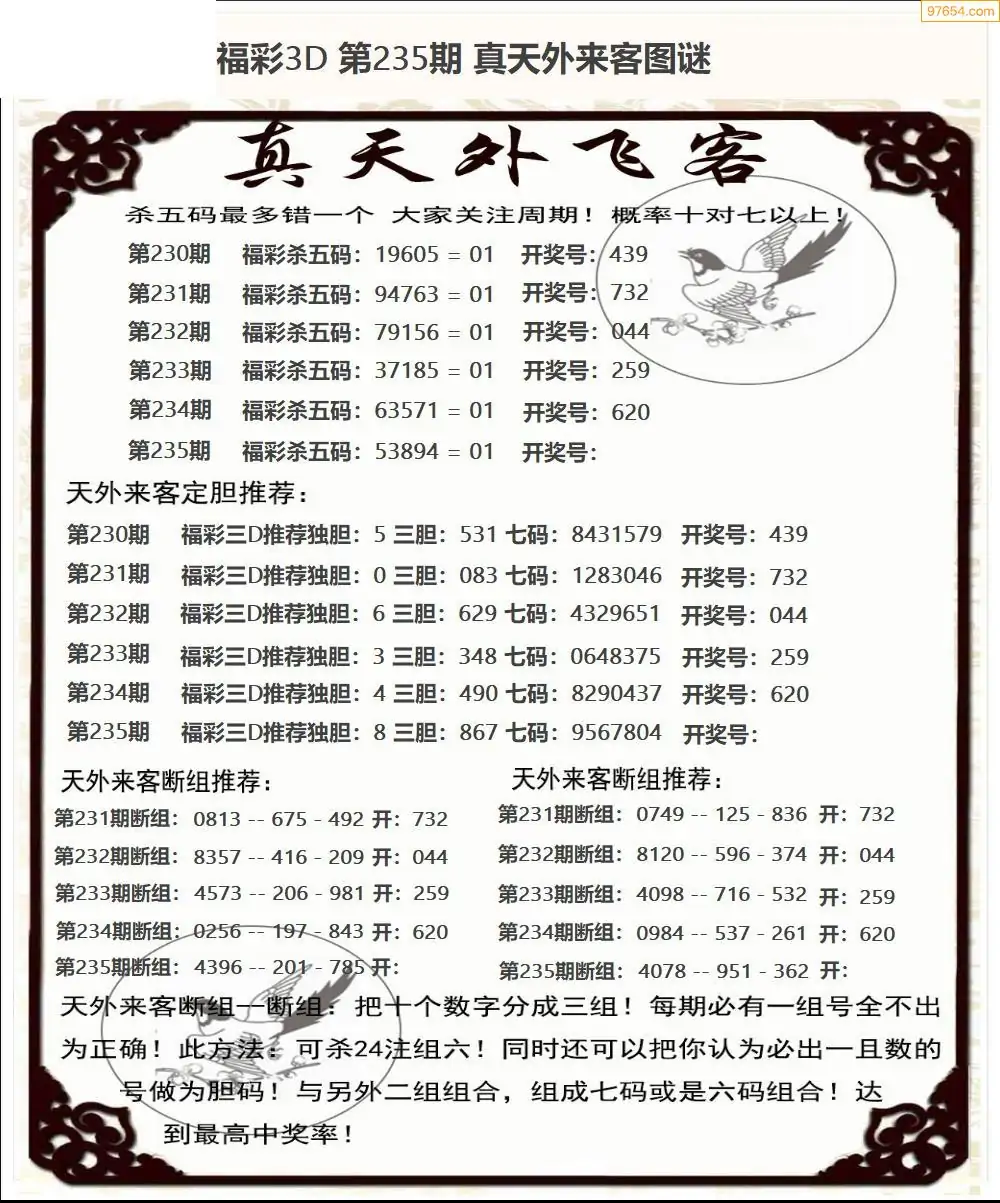 97654.com
福彩3D 第235期 真天外来客图谜
真天外飞客
杀五码最多错一个 大家关注周期！概率十对七以上！
第230期 福彩杀五码：19605 = 01 开奖号：439
第231期 福彩杀五码：94763 = 01 开奖号：732
第232期 福彩杀五码：79156 = 01 开奖号：044
第233期 福彩杀五码：37185 = 01 开奖号：259
第234期 福彩杀五码：63571 = 01 开奖号：620
第235期 福彩杀五码：53894 = 01 开奖号：
天外来客定胆推荐：
第230期 福彩三D推荐独胆：5 三胆：531 七码：8431579 开奖号：439
第231期 福彩三D推荐独胆：0 三胆：083 七码：1283046 开奖号：732
第232期 福彩三D推荐独胆：6 三胆：629 七码：4329651 开奖号：044
第233期 福彩三D推荐独胆：3 三胆：348 七码：0648375 开奖号：259
第234期 福彩三D推荐独胆：4 三胆：490 七码：8290437 开奖号：620
第235期 福彩三D推荐独胆：8 三胆：867 七码：9567804 开奖号：
天外来客断组推荐：
第231期断组：0813 -- 675 - 492 开：732
第232期断组：8357 -- 416 - 209 开：044
第233期断组：4573 -- 206 - 981 开：259
第234期断组：0256 -- 197 - 843 开：620
第235期断组：4396 -- 201 - 785 开：
天外来客断组推荐：
第231期断组：0749 -- 125 - 836 开：732
第232期断组：8120 -- 596 - 374 开：044
第233期断组：4098 -- 716 - 532 开：259
第234期断组：0984 -- 537 - 261 开：620
第235期断组：4078 -- 951 - 362 开：
天外来客断组一断组：把十个数字分成三组！每期必有一组号全不出
为正确！此方法：可杀24注组六！同时还可以把你认为必出一且数的
号做为胆码！与另外二组组合，组成七码或是六码组合！达
到最高中奖率！